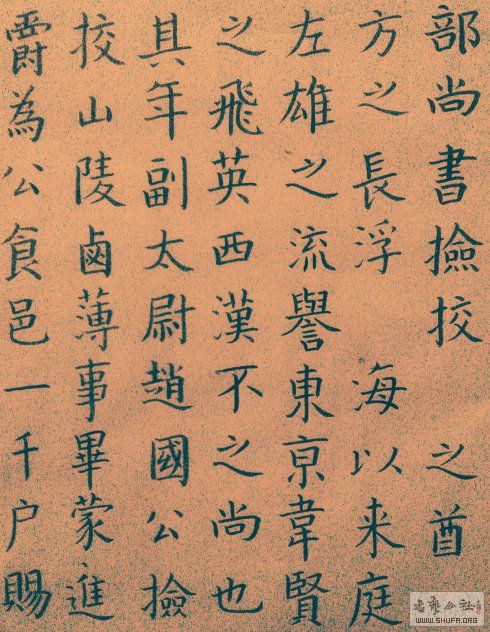 部尚書撿挍之酋
方之長浮海以来庭
左雄之流譽東京韋賢
之飛英西漢不之尚也
其年副太尉趙國公撿
挍山陵鹵薄事畢蒙進
爵為公食邑一千户賜
WWW.SHUFA.ORG